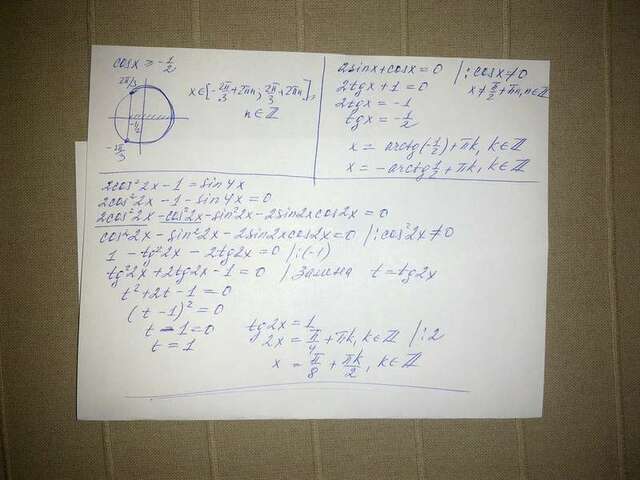 cosx ≥ -1/2
2π/3
-1/2
-2π/3
x∈[-2π/3+2πn; 2π/3+2πn],
n∈ℤ
2sinx+cosx=0 /:cosx≠0
x≠π/2+πn, n∈ℤ
2tgx+1=0
2tgx=-1
tgx=-1/2
x=arctg(-1/2)+πk, k∈ℤ
x=-arctg1/2+πk, k∈ℤ
2cos²2x-1=sin4x
2cos²2x-1-sin4x=0
2cos²2x-cos²2x-sin²2x-2sin2xcos2x=0
cos²2x-sin²2x-2sin2xcos2x=0 /:cos²2x≠0
1-tg²2x-2tg2x=0 /:(-1)
tg²2x+2tg2x-1=0 /Замена t=tg2x
t²+2t-1=0
(t-1)²=0
t-1=0
t=1
tg2x=1
2x=π/4+πk, k∈ℤ /:2
x=π/8+πk/2, k∈ℤ